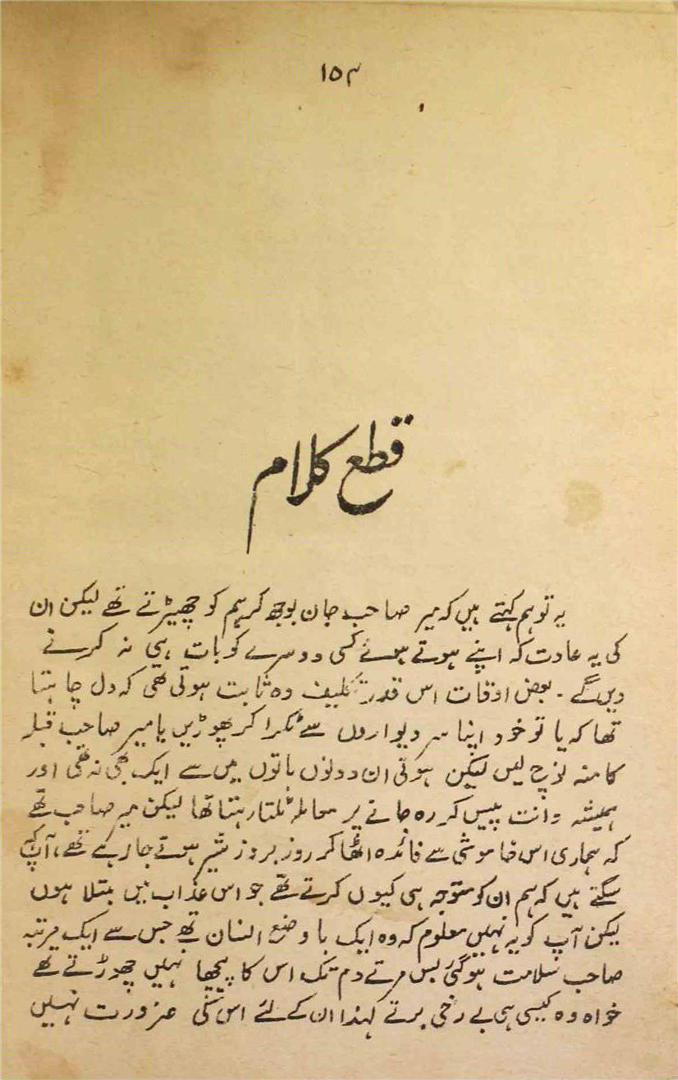 ۱۵۴
قطع کلام
یہ تو ہم کہتے ہیں کہ میر صاحب جان بوجھ کر ہم کو چھیڑتے تھے لیکن ان
کی یہ عادت کہ اپنے ہوتے ہوئے کسی دوسرے کو بات ہی نہ کرنے
دیں گے۔ بعض اوقات اس قدر تکلیف دہ ثابت ہوتی تھی کہ دل چاہتا
تھا کہ یا تو خود اپنا سر دیواروں سے ٹکرا کر پھوڑیں یا میر صاحب قبلہ
کا منہ نوچ لیں لیکن ہوتی ان دونوں باتوں میں سے ایک بھی نہ تھی اور
ہمیشہ دانت پیس کر رہ جانے پر معاملہ ٹلتا رہتا تھا لیکن میر صاحب تھے
کہ ہماری اس خاموشی سے فائدہ اٹھا کر روز بروز شیر ہوتے جا رہے تھے، آپ کہہ
سکتے ہیں کہ ہم ان کو متوجہ ہی کیوں کرتے تھے جو اس عذاب میں مبتلا ہوں
لیکن آپ کو یہ نہیں معلوم کہ وہ ایک با وضع انسان تھے جس سے ایک مرتبہ
صاحب سلامت ہو گئی بس مرتے دم تک اس کا پیچھا نہیں چھوڑتے تھے
خواہ وہ کیسی ہی بے رخی برتے لہذا ان کے لئے اس کی ضرورت نہیں